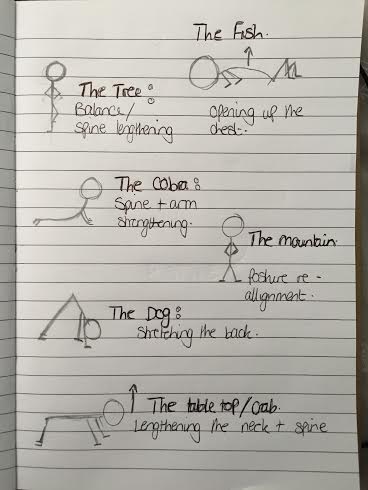 The Fish.
The Tree:
Balance/
spine lengthening
opening up the
chest.
The Cobra:
Spine + arm
strengthening.
The mountain.
Posture re-
allignment.
The Dog:
Stretching the back.
The table top/crab.
Lengthening the neck + spine